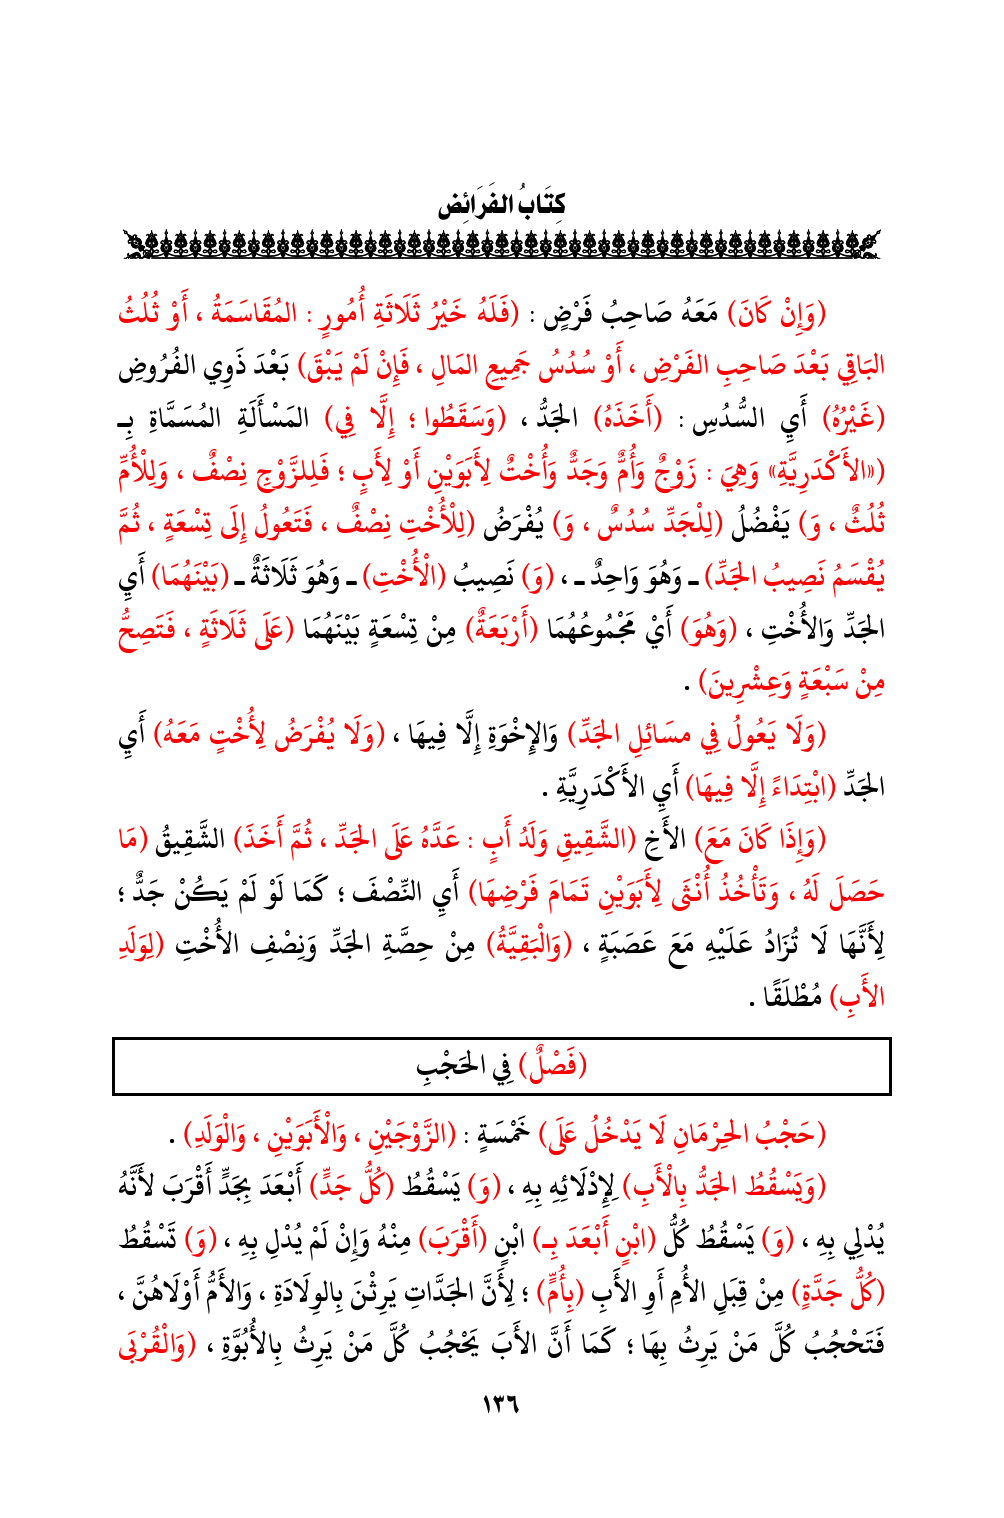 كِتَابُ الفَرَائِض
(وَإِنْ كَانَ) مَعَهُ صَاحِبُ فَرْضٍ : (فَلَهُ خَيْرُ ثَلَاثَةِ أُمُورٍ : المُقَاسَمَةُ ، أَوْ ثُلُثُ
البَاقِي بَعْدَ صَاحِبِ الفَرْضِ ، أَوْ سُدُسُ جَمِيعِ المَالِ ، فَإِنْ لَمْ يَبْقَ) بَعْدَ ذَوِي الفُرُوضِ
(غَيْرُهُ) أَيِ السُّدُسِ : (أَخَذَهُ) الجَدُّ ، (وَسَقَطُوا ؛ إِلَّا فِي) المَسْأَلَةِ المُسَمَّاةِ بِـ
(«الأَكْدَرِيَّةِ» وَهِيَ : زَوْجٌ وَأُمٌّ وَجَدٌّ وَأُخْتٌ لِأَبَوَيْنِ أَوْ لِأَبٍ ؛ فَلِلزَّوْجِ نِصْفٌ ، وَلِلْأُمِّ
ثُلُثٌ ، وَ) يَفْضُلُ (لِلْجَدِّ سُدُسٌ ، وَ) يُفْرَضُ (لِلْأُخْتِ نِصْفٌ ، فَتَعُولُ إِلَى تِسْعَةٍ ، ثُمَّ
يُقْسَمُ نَصِيبُ الجَدِّ) ـ وَهُوَ وَاحِدٌ ـ ، (وَ) نَصِيبُ (الْأُخْتِ) ـ وَهُوَ ثَلَاثَةٌ ـ (بَيْنَهُمَا) أَيِ
الجَدِّ وَالأُخْتِ ، (وَهُوَ) أَيْ مَجْمُوعُهُمَا (أَرْبَعَةٌ) مِنْ تِسْعَةٍ بَيْنَهُمَا (عَلَى ثَلَاثَةٍ ، فَتَصِحُّ
مِنْ سَبْعَةٍ وَعِشْرِينَ) .
(وَلَا يَعُولُ فِي مسَائِلِ الجَدِّ) وَالإِخْوَةِ إِلَّا فِيهَا ، (وَلَا يُفْرَضُ لِأُخْتٍ مَعَهُ) أَيِ
الجَدِّ (ابْتِدَاءً إِلَّا فِيهَا) أَيِ الأَكْدَرِيَّةِ .
(وَإِذَا كَانَ مَعَ) الأَخِ (الشَّقِيقِ وَلَدُ أَبٍ : عَدَّهُ عَلَى الجَدِّ ، ثُمَّ أَخَذَ) الشَّقِيقُ (مَا
حَصَلَ لَهُ ، وَتَأْخُذُ أُنْثَى لِأَبَوَيْنِ تَمَامَ فَرْضِهَا) أَيِ النِّصْفَ ؛ كَمَا لَوْ لَمْ يَكُنْ جَدٌّ ؛
لِأَنَّهَا لَا تُزَادُ عَلَيْهِ مَعَ عَصَبَةٍ ، (وَالْبَقِيَّةُ) مِنْ حِصَّةِ الجَدِّ وَنِصْفِ الأُخْتِ (لِوَلَدِ
الأَبِ) مُطْلَقًا .
(فَصْلٌ) فِي الحَجْبِ
(حَجْبُ الحِرْمَانِ لَا يَدْخُلُ عَلَى) خَمْسَةٍ : (الزَّوْجَيْنِ ، وَالْأَبَوَيْنِ ، وَالْوَلَدِ) .
(وَيَسْقُطُ الجَدُّ بِالْأَبِ) لِإِدْلَائِهِ بِهِ ، (وَ) يَسْقُطُ (كُلُّ جَدٍّ) أَبْعَدَ بِجَدٍّ أَقْرَبَ لأَنَّهُ
يُدْلِي بِهِ ، (وَ) يَسْقُطُ كُلُّ (ابْنٍ أَبْعَدَ بِـ) ابْنٍ (أَقْرَبَ) مِنْهُ وَإِنْ لَمْ يُدْلِ بِهِ ، (وَ) تَسْقُطُ
(كُلُّ جَدَّةٍ) مِنْ قِبَلِ الأُمِ أَوِ الأَبِ (بِأُمٍّ) ؛ لِأَنَّ الجَدَّاتِ يَرِثْنَ بِالوِلَادَةِ ، وَالأَمُّ أَوْلَاهُنَّ ،
فَتَحْجُبُ كُلَّ مَنْ يَرِثُ بِهَا ؛ كَمَا أَنَّ الأَبَ يَحْجُبُ كُلَّ مَنْ يَرِثُ بِالأُبُوَّةِ ، (وَالْقُرْبَى
١٣٦